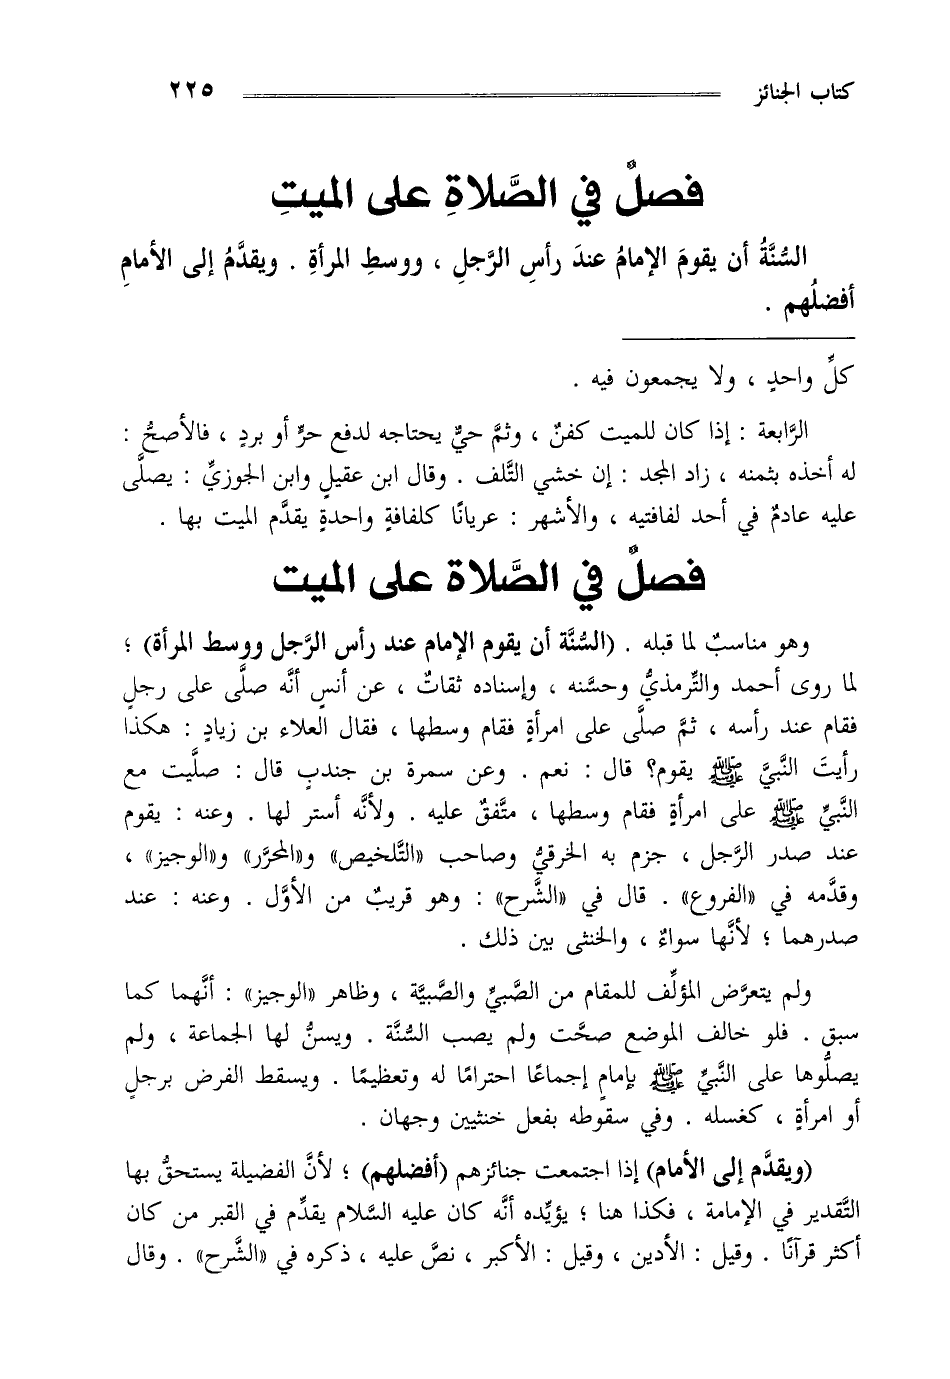 كتاب الجنائز ٢٢٥
فصلٌ في الصَّلاةِ على الميتِ
السُّنَّةُ أن يقومَ الإمامُ عندَ رأسِ الرَّجلِ ، ووسطِ المرأةِ . ويقدَّمُ إلى الأمامِ
أفضلُهم .
كلِّ واحدٍ ، ولا يجمعون فيه .
الرَّابعة : إذا كان للميت كفنٌ ، وثمَّ حيٌّ يحتاجه لدفع حرٍّ أو بردٍ ، فالأصحُّ :
له أخذه بثمنه ، زاد المجد : إن خشي التَّلف . وقال ابن عقيلٍ وابن الجوزيِّ : يصلَّى
عليه عادمٌ في أحد لفافتيه ، والأشهر : عريانًا كلفافةٍ واحدةٍ يقدَّم الميت بها .
فصلٌ في الصَّلاة على الميت
وهو مناسبٌ لما قبله . (السُّنَّة أن يقوم الإمام عند رأس الرَّجل ووسط المرأة) ؛
لما روى أحمد والتِّرمذيُّ وحسَّنه ، وإسناده ثقاتٌ ، عن أنسٍ أنَّه صلَّى على رجلٍ
فقام عند رأسه ، ثمَّ صلَّى على امرأةٍ فقام وسطها ، فقال العلاء بن زيادٍ : هكذا
رأيتَ النَّبيَّ ﷺ يقوم؟ قال : نعم . وعن سمرة بن جندبٍ قال : صلَّيت مع
النَّبيِّ ﷺ على امرأةٍ فقام وسطها ، متَّفقٌ عليه . ولأنَّه أستر لها . وعنه : يقوم
عند صدر الرَّجل ، جزم به الخرقيُّ وصاحب «التَّلخيص» و«المحرَّر» و«الوجيز» ،
وقدَّمه في «الفروع» . قال في «الشَّرح» : وهو قريبٌ من الأوَّل . وعنه : عند
صدرهما ؛ لأنَّها سواءٌ ، والخنثى بين ذلك .
ولم يتعرَّض المؤلِّف للمقام من الصَّبيِّ والصَّبيَّة ، وظاهر «الوجيز» : أنَّهما كما
سبق . فلو خالف الموضع صحَّت ولم يصب السُّنَّة . ويسنُّ لها الجماعة ، ولم
يصلُّوها على النَّبيِّ ﷺ بإمامٍ إجماعًا احترامًا له وتعظيمًا . ويسقط الفرض برجلٍ
أو امرأةٍ ، كغسله . وفي سقوطه بفعل خنثيين وجهان .
(ويقدَّم إلى الأمام) إذا اجتمعت جنائزهم (أفضلهم) ؛ لأنَّ الفضيلة يستحقُّ بها
التَّقدير في الإمامة ، فكذا هنا ؛ يؤيِّده أنَّه كان عليه السَّلام يقدِّم في القبر من كان
أكثر قرآنًا . وقيل : الأدين ، وقيل : الأكبر ، نصَّ عليه ، ذكره في «الشَّرح» . وقال